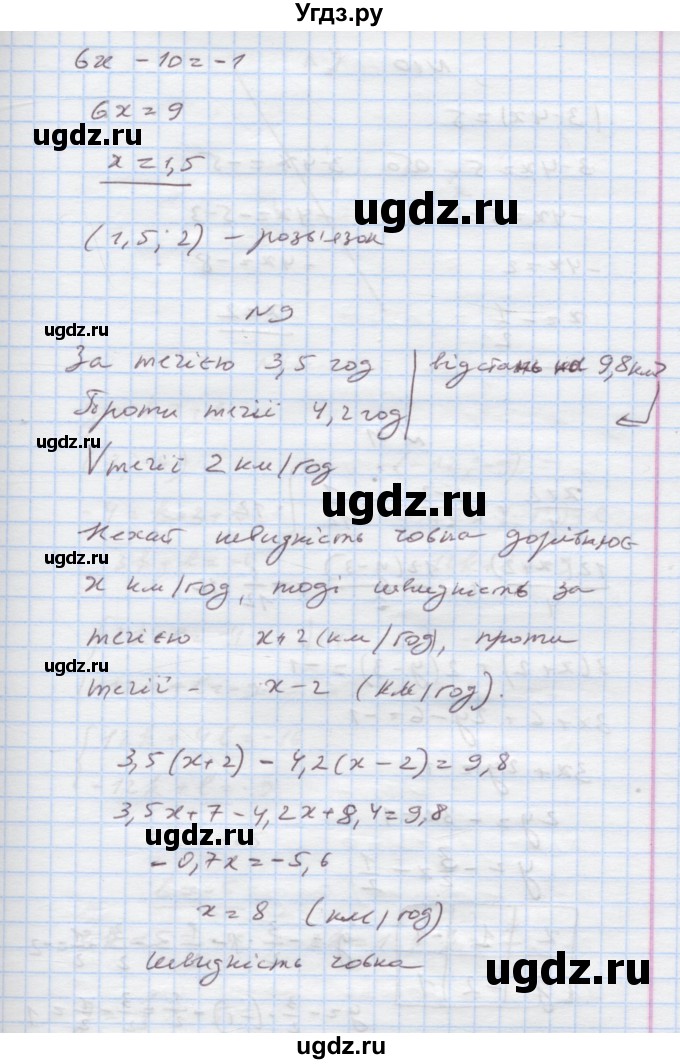 Угдз.ру
6x - 10 = -1
6x = 9
ugdz.ru
x = 1,5
ugdz.ru
(1,5; 2) - розв'язок
N9
ugdz.ru
За течією 3,5 год | відстань на 9,8 км
Проти течії 4,2 год
ugdz.ru
Vтечії 2 км/год
ugdz.ru
Нехай швидкість човна дорівнює
ugdz.ru
x км/год, тоді швидкість за
течією x+2 (км/год), проти
ugdz.ru
течії - x-2 (км/год).
3,5(x+2) - 4,2(x-2) = 9,8
3,5x+7-4,2x+8,4=9,8
ugdz.ru
-0,7x = -5,6
x = 8 (км/год)
швидкість човна
ugdz.ru